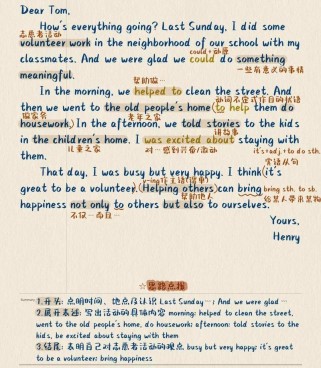 Dear Tom,
How's everything going? Last Sunday, I did some
志愿者活动
volunteer work in the neighborhood of our school with my
could+动原
classmates. And we were glad we could do something
一些有意义的事情
meaningful.
帮助做…
In the morning, we helped to clean the street. And
动词不定式作目的状语
then we went to the old people's home (to help them do
做家务
老年之家
housework.) In the afternoon, we told stories to the kids
讲故事
in the children's home. I was excited about staying with
儿童之家
对…感到兴奋/激动
it's+adj.+to do sth.
them.
宾语从句
That day, I was busy but very happy. I think (it's
-ing作主语(谓单)
great to be a volunteer.) (Helping others) can bring
bring sth. to sb.
帮助他人
给某人带来某物
happiness not only to others but also to ourselves.
不仅…而且…
Yours,
Henry
☆思路点拨
1.开头: 点明时间、地点及认识 Last Sunday…; And we were glad…
2.展开表述: 写出活动的具体内容 morning: helped to clean the street,
went to the old people's home, do housework; afternoon: told stories to the
kids, be excited about staying with them
3.结尾: 表明自己对志愿者活动的观点 busy but very happy; it's great
to be a volunteer; bring happiness